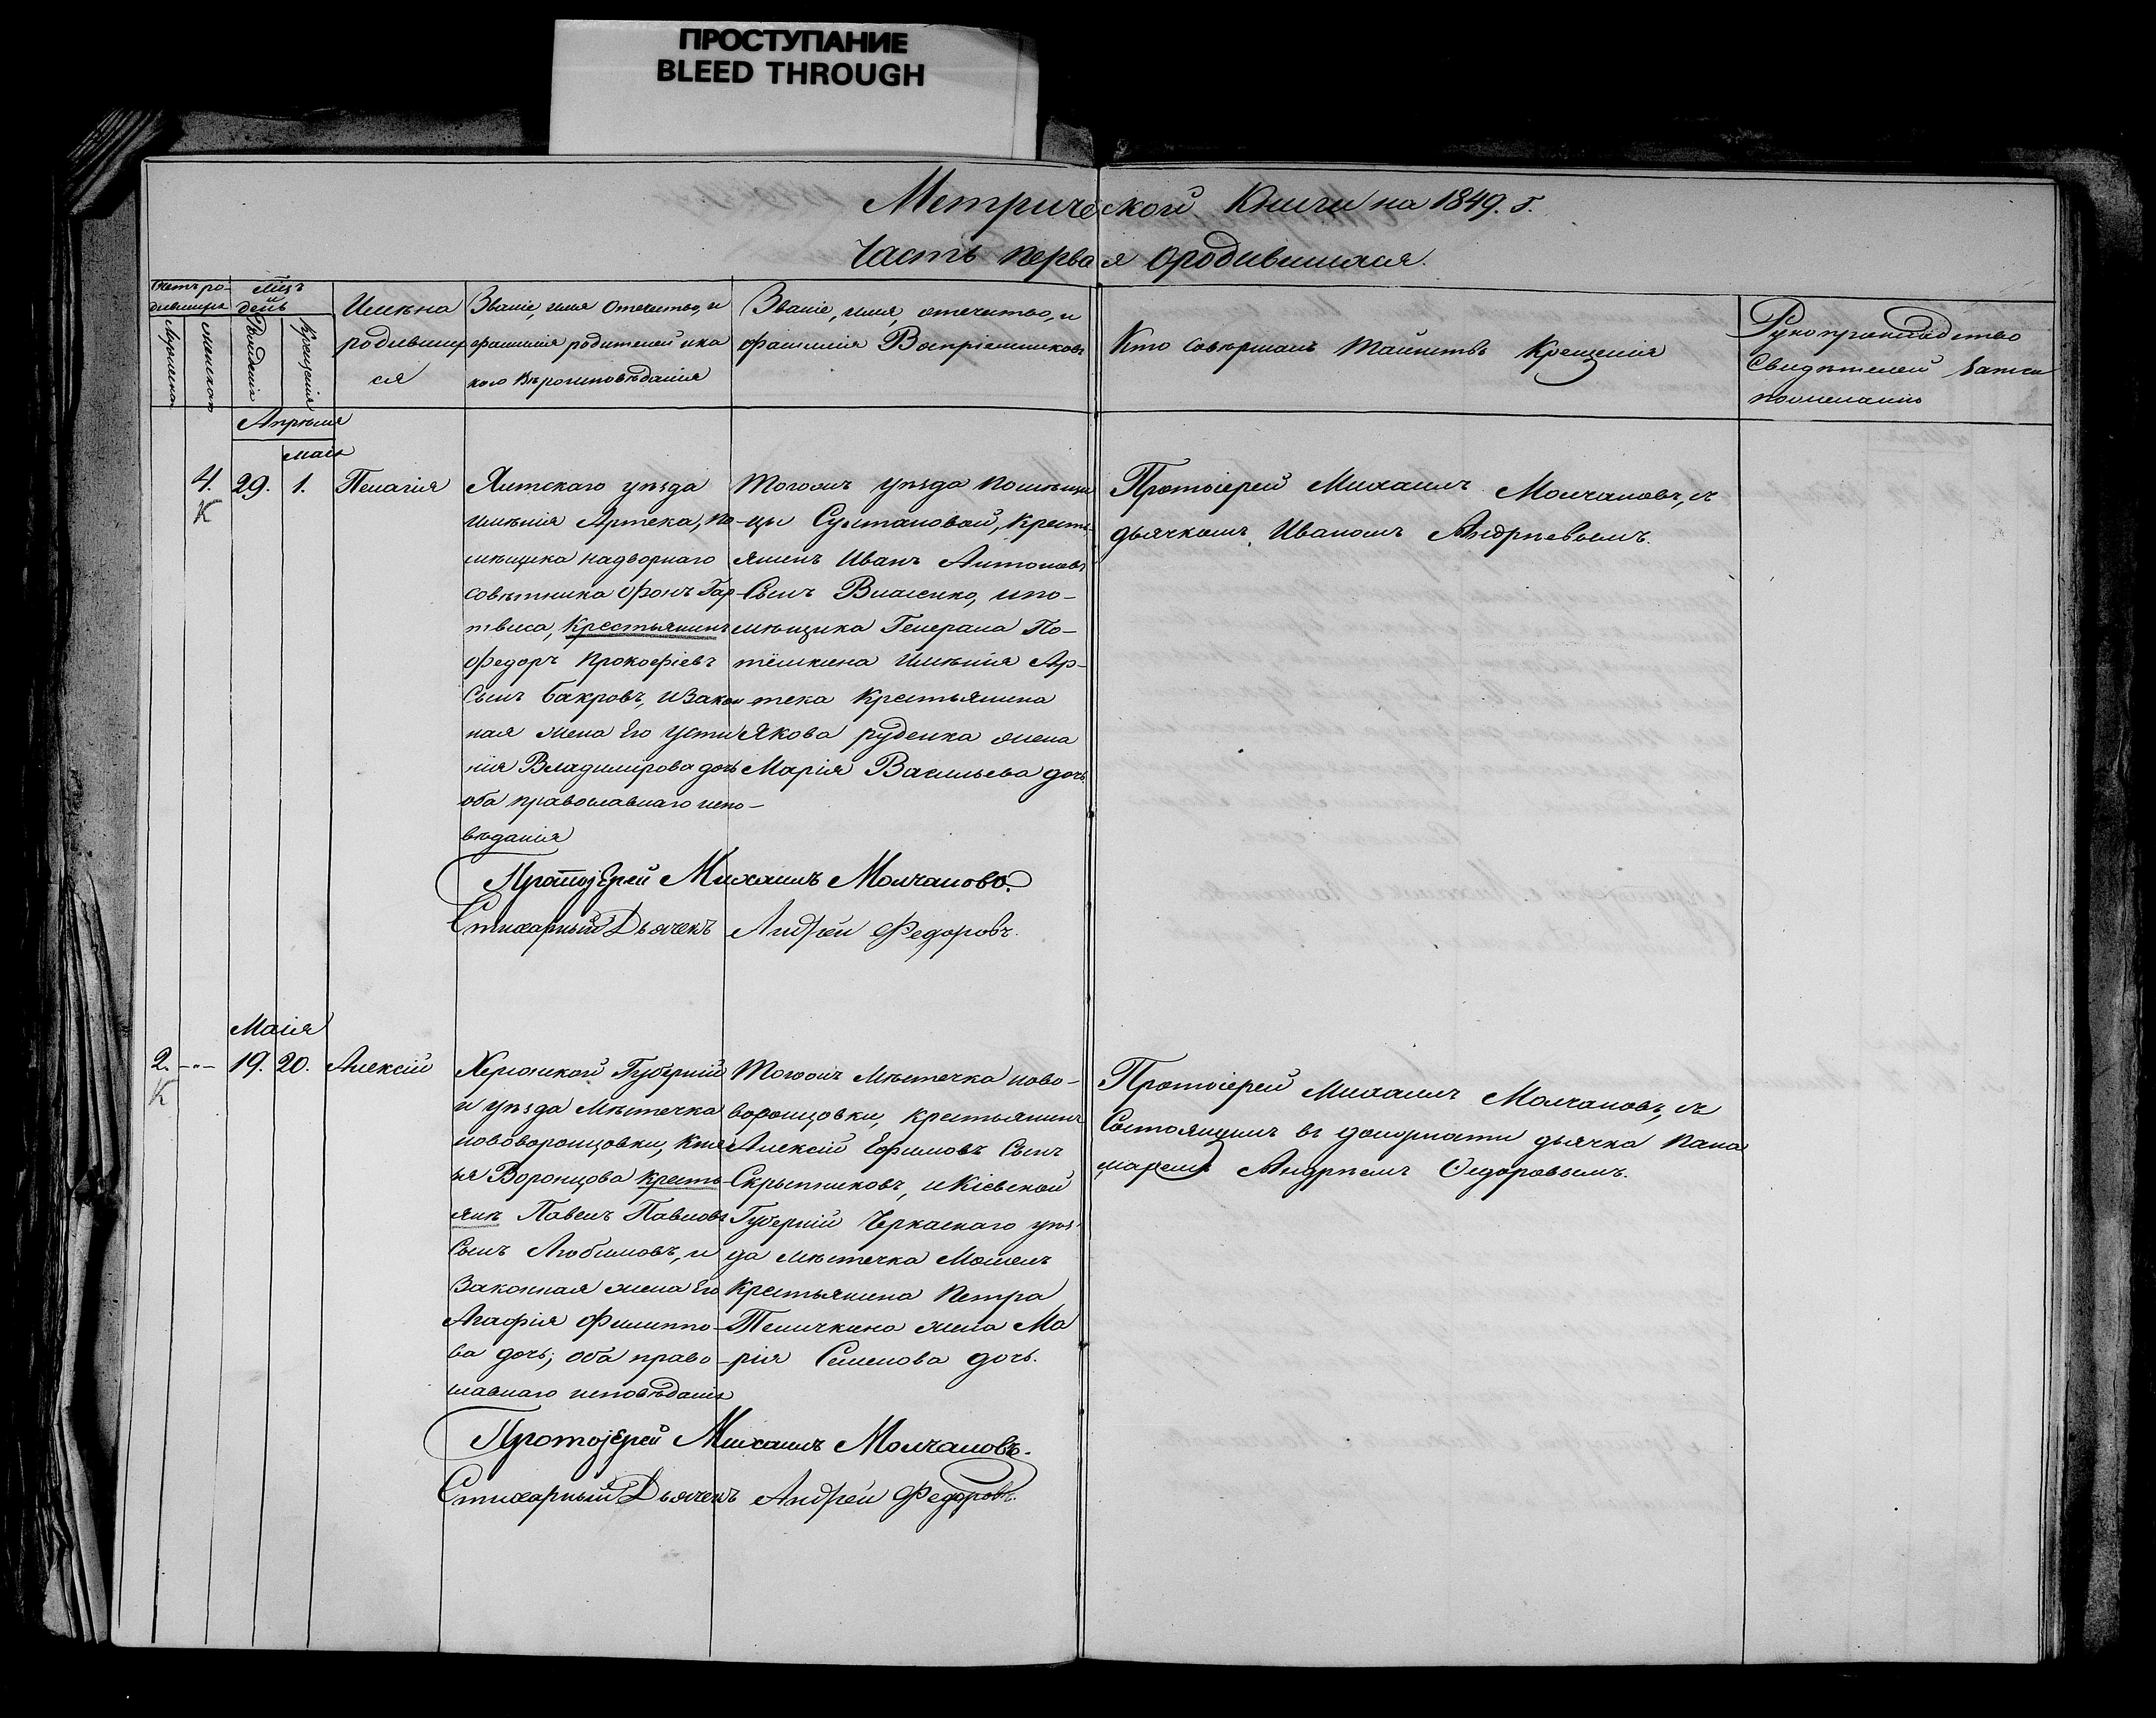 ПРОСТУПАНИЕ
BLEED THROUGH
Метрической Книги на 1849. г.
Часть первая о родившихся.
Счетъ ро-
дившихся
Мужеска
Женска
Мцъ
и
день
Рожденія
Крещенія
Имѣна
родивших
ся
Званіе, имя Отечество, и
фамилія родителей и ка
кого Вѣроисповѣданія
Званіе, имя, отечество, и
фамилія Воспріемниковъ
Кто совѣршалъ Таинство Крещенія
Рукоприкладство
Свидѣтелей записи
по желанію
Апрѣля
маія
4. 29. 1. Пелагія
К
Ялтскаго уѣзда
имѣнія Артека, по-
мѣщика надворнаго
совѣтника Фонъ Гар-
твиса, Крестьянинъ
Федоръ Прокофіевъ
Сынъ Бакровъ, и закон
ная жена Его Усти
нія Владимірова дочь
оба православнаго испо-
вѣданія
Тогожъ уѣзда помѣщи
цы Султановой, Кресть-
янинъ Иванъ Антоновъ
Сынъ Власенко, и по-
мѣщика Генерала По-
тёмкина Имѣнія Ар-
тека Крестьянина
Якова руденка жена
Марія Васильева дочь
Протоіерей Михаилъ Молчановъ, съ
дьячкомъ Иваномъ Андреевымъ.
Протоjерей Михаилъ Молчановъ.
Стихарный Дьячекъ Андрей Федоровъ.
Маія
2. -"- 19. 20. Алексій
К
Херсонской Губерніи
и уѣзда Мѣстечка
нововоронцовки, Кня
зя Воронцова Кресть-
янъ Павелъ Павловъ
Сынъ Любимовъ, и
Законная жена Его
Агафія Филиппо-
ва дочь; оба право-
славнаго исповѣданія
Тогожъ Мѣстечка ново-
воронцовки, Крестьянинъ
Алексій Ефимовъ Сынъ
Скрыпниковъ, и Кіевской
Губерніи Черкаскаго уѣз-
да мѣстечка Мошенъ
Крестьянина Петра
Теличкина жена Ма
рія Семенова дочь.
Протоіерей Михаилъ Молчановъ, съ
Состоящимъ въ должности дьячка пана
маремъ Андреемъ Ѳедоровымъ.
Протоjерей Михаилъ Молчановъ.
Стихарный Дьячекъ Андрей Федоровъ.